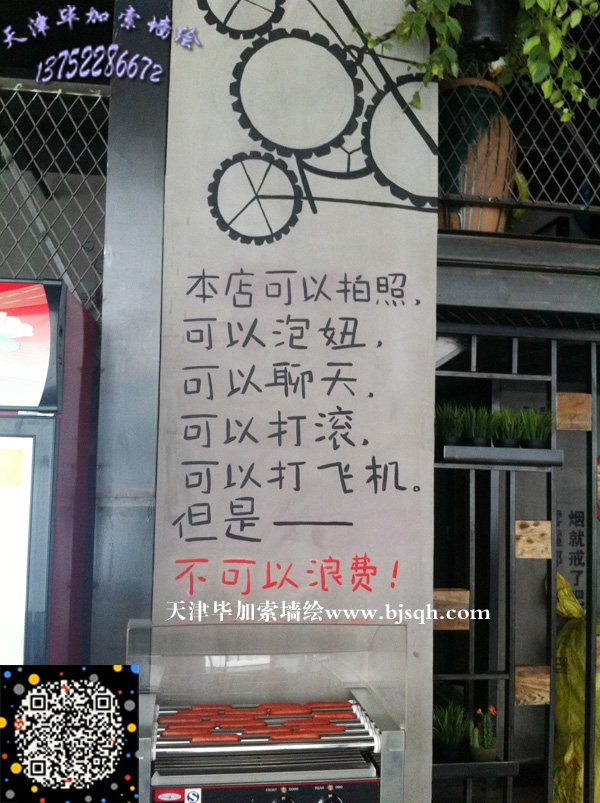 天津毕加索墙绘
13752286672
本店可以拍照,
可以泡妞,
可以聊天,
可以打滚,
可以打飞机。
但是——
不可以浪费!
天津毕加索墙绘www.bjsqh.com
烟就戒了吧